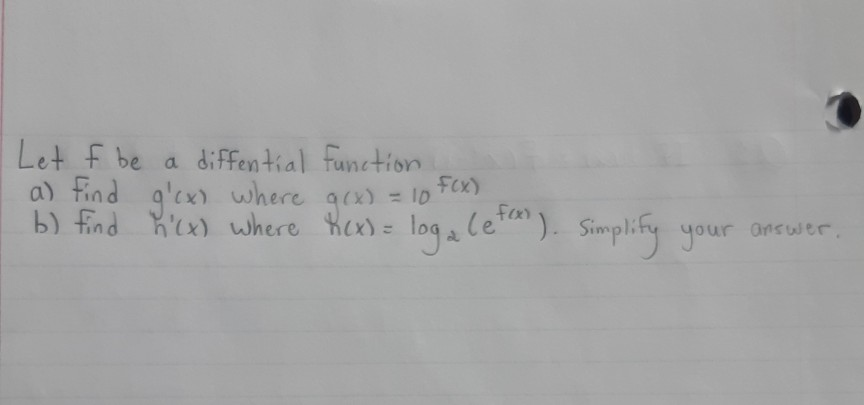 Let f be a diffential function
a) find g'(x) where g(x) = 10^f(x)
b) find h'(x) where h(x) = log₂ (e^f(x)). Simplify your answer.